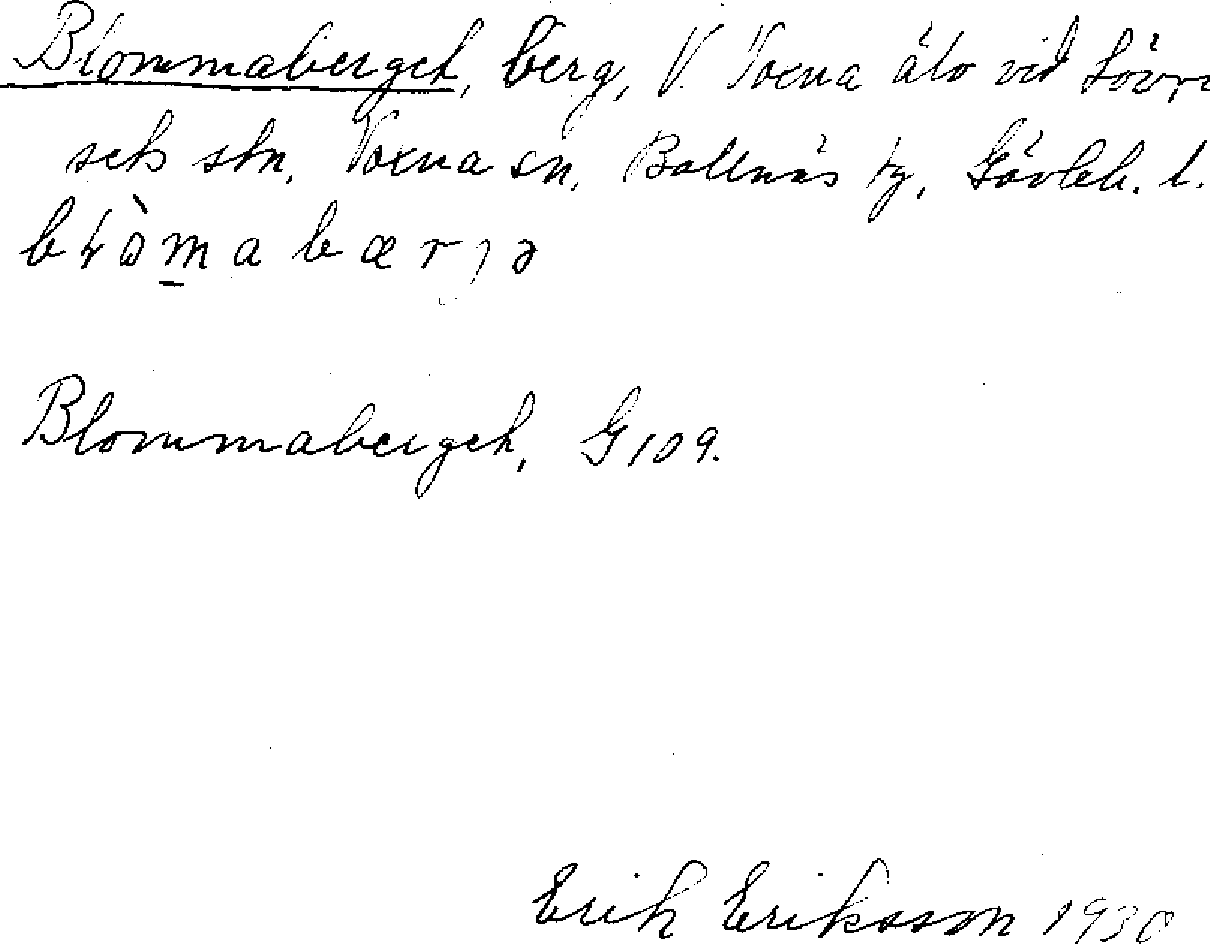 Blommaberget, berg, V. Voxna älv vid Lövri
seks stn. Voxna sn. Bollnäs tg, Gävleb. l.
Blommaberget, G 109.
Erik Eriksson 1930